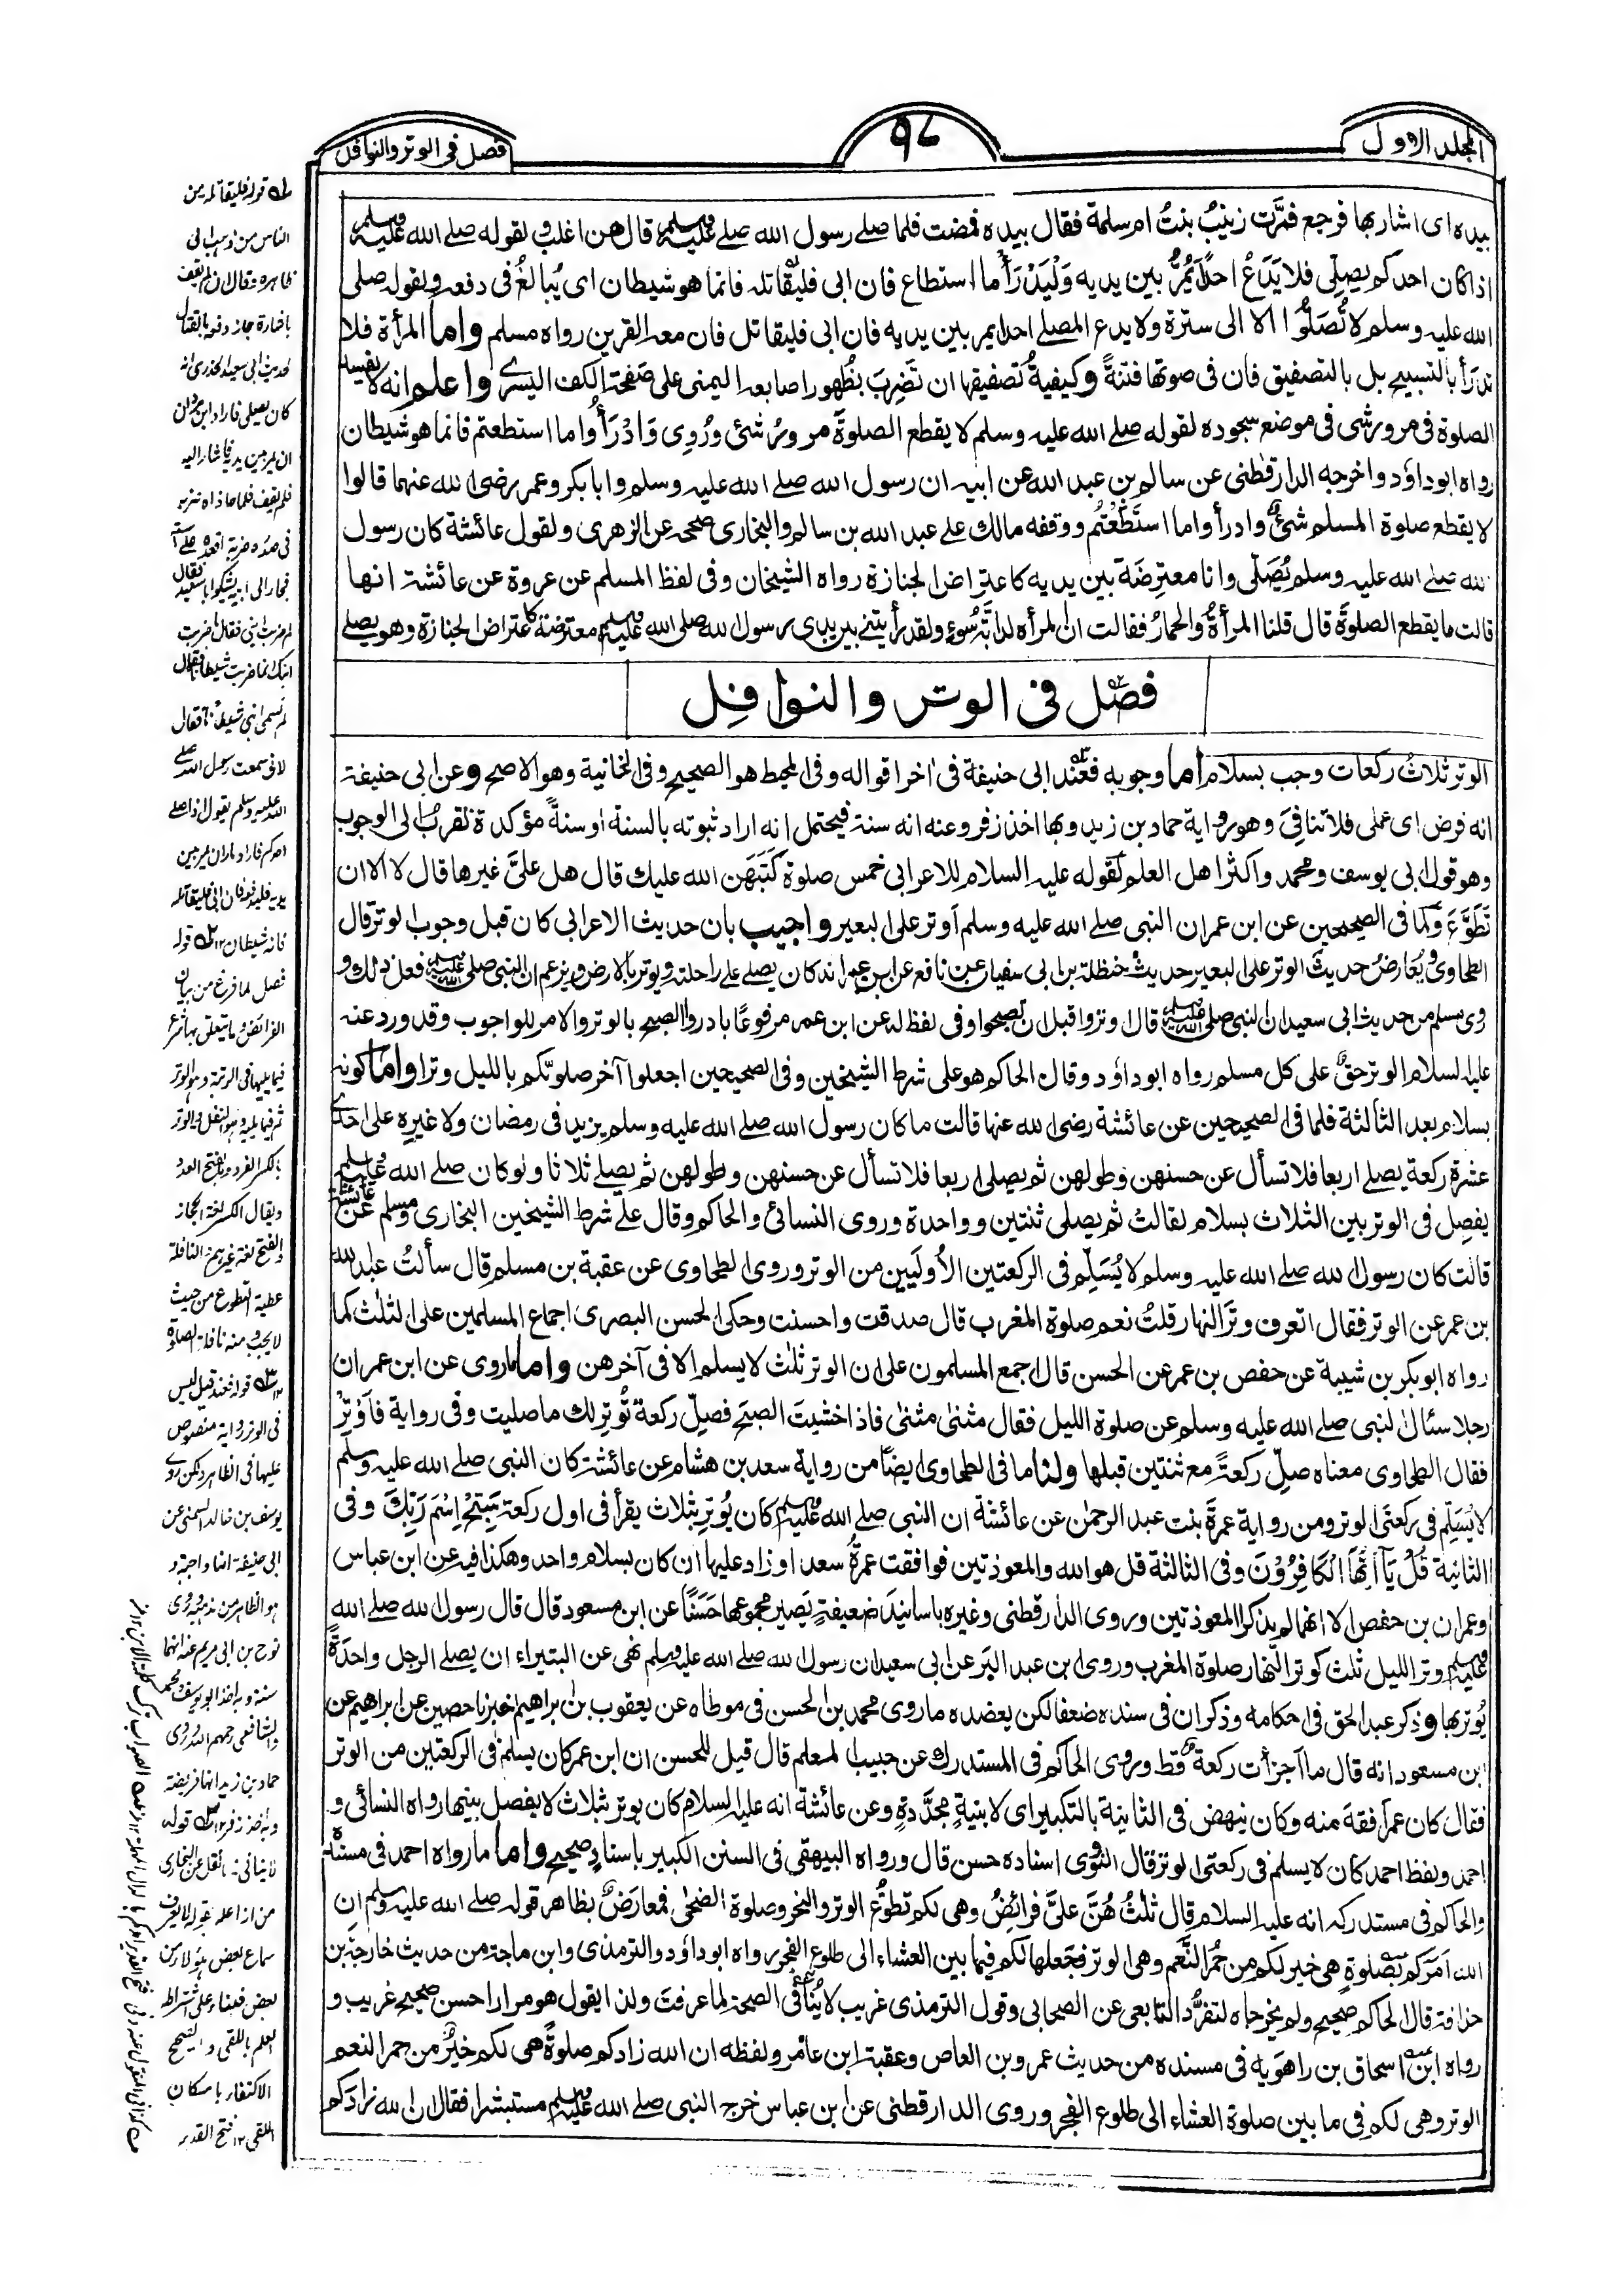 المجلد الاول
٩٧
فصل فى الوتر والنوافل
بيده اى اشار بها فرجع فمرَّت زينبُ بنتُ ام سلمة فقال بيده فمضت فلما صلے رسول الله صلے الله عليه وسلم قال هن اغلب ولقوله صلے الله عليه وسلم
اذا كان احدكم يصلى فلا يَدَعْ احدًا يَمُرُّ بين يديه وَلْيَدْرَأْ ما استطاع فان ابى فليقاتله فانما هو شيطان اى يُبالغُ فى دفعه ولقوله صلى
الله عليه وسلم لا تُصَلُّوا الا الى سترة ولا يدع المصلے احدا يمر بين يديه فان ابى فليقاتل فان معه القرين رواه مسلم واما المرأة فلا
تدرَأُ بالتسبيح بل بالتصفيق فان فى صوتها فتنةً وكيفيةُ تصفيقها ان تضرِبَ بظُهور اصابعه اليمنى على صَفحة الكف اليسرے واعلم انه لا يفسد
الصلوة فى مرور شى فى موضع سجوده لقوله صلے الله عليه وسلم لا يقطع الصلوةَ مرورُ شئ ورُوِى وَادْرَأُوا ما استطعتم فانما هو شيطان
رواه ابوداؤد واخرجه الدارقطنى عن سالم بن عبد الله عن ابيه ان رسول الله صلے الله عليه وسلم وابا بكر وعمر رضى الله عنهما قالوا
لا يقطع صلوة المسلم شئ وادرأوا ما استَطَعْتُم ووقفه مالك على عبد الله بن سالم والبخارى صححه عن الزهرى ولقول عائشة كان رسول
الله صلے الله عليه وسلم يُصَلّى وانا معترِضَة بين يديه كاعتراض الجنازة رواه الشيخان وفى لفظ المسلم عن عروة عن عائشة انها
قالت ما يقطع الصلوةَ قال قلنا المرأةُ والحمارُ فقالت ان المرأه لدابَّة سُوءٍ ولقد رأيتنے بين يدى رسول الله صلى الله عليه وسلم معترضة كاعتراض الجنازة وهو يصلے
فصل فى الوتر والنوافل
الوتر ثلاثُ ركعات وجب بسلام اما وجوبه فعند ابى حنيفة فى اٰخر اقواله وفى المحيط هو الصحيح وفى الخانية وهو الاصح وعن ابى حنيفة
انه فرض اى عملى فلا تنافِىَ وهو رواية حماد بن زيد وبها اخذ زفر وعنه انه سنة فيحتمل انه اراد ثبوته بالسنة او سنةً مؤكدة تقرُبُ الى الوجوب
وهو قول ابى يوسف ومحمد واكثر اهل العلم لقوله عليه السلام للاعرابى خمس صلوة كَتَبَهَن الله عليك قال هل علىَّ غيرها قال لا الا ان
تَطَوَّعَ ولما فى الصحيحين عن ابن عمر ان النبى صلے الله عليه وسلم اَوتر على البعير واجيب بان حديث الاعرابى كان قبل وجوب الوتر قال
الطحاوى ويُعارضُ حديثَ الوتر على البعير حديثُ حنظلة بن ابى سفيان عن نافع عن ابن عمر انه كان يصلے على راحلته ويوتر بالارض ويزعم ان النبى صلى الله عليه وسلم فعل ذلك و
روى مسلم من حديث ابى سعيد ان النبى صلى الله عليه وسلم قال اوتروا قبل ان تصبحوا وفى لفظ له عن ابن عمر مرفوعًا بادروا الصبح بالوتر والامر للواجوب وقد ورد عنه
عليه السلام الوتر حقٌ على كل مسلم رواه ابوداؤد وقال الحاكم هو على شرط الشيخين وفى الصحيحين اجعلوا آخر صلوتكم بالليل وترا واما كونه
بسلام بعد الثالثة فلما فى الصحيحين عن عائشة رضى الله عنها قالت ما كان رسول الله صلے الله عليه وسلم يزيد فى رمضان ولا غيره على احدے
عشرة ركعة يصلے اربعا فلا تسأل عن حسنهن وطولهن ثم يصلى اربعا فلا تسأل عن حسنهن وطولهن ثم يصلے ثلاثا ولو كان صلے الله عليه وسلم
يفصِل فى الوتر بين الثلاث بسلام لقالتُ ثم يصلى ثنتين وواحدة وروى النسائى والحاكم وقال على شرط الشيخين البخارى ومسلم عن عائشة
قالت كان رسول الله صلے الله عليه وسلم لا يُسَلّم فى الركعتين الأوليين من الوتر وروى الطحاوى عن عقبة بن مسلم قال سألتُ عبد الله
بن عمر عن الوتر فقال اتعرف وترَ النهار قلتُ نعم صلوة المغرب قال صدقت واحسنت وحكى الحسن البصرى اجماع المسلمين على الثلٰث كما
رواه ابوبكر بن شيبة عن حفص بن عمر عن الحسن قال اجمع المسلمون على ان الوتر ثلٰث لا يسلم الا فى آخرهن واما ما روى عن ابن عمر ان
رجلا سئال النبى صلے الله عليه وسلم عن صلوة الليل فقال مثنىٰ مثنىٰ فاذا خشيتَ الصبحَ فصلِّ ركعة تُوتِر لك ما صليت وفى رواية فاَوْتِرْ
فقال الطحاوى معناه صلِّ ركعةً مع ثنتين قبلها ولنا ما فى الطحاوى ايضًا من رواية سعد بن هشام عن عائشة كان النبى صلے الله عليه وسلم
لا يُسَلِّم فى ركعتَى الوتر ومن رواية عمرَةَ بنت عبد الرحمٰن عن عائشة ان النبى صلے الله عليه وسلم كان يُوتر بثلاث يقرأ فى اول ركعة سَبِّحْ اِسْمَ رَبِّكَ وفى
الثانية قُلْ يَآ اَيُّهَا الْكَافِرُوْنَ وفى الثالثة قل هو الله والمعوذتين فوافقت عمرةُ سعدا وزاد عليها ان كان بسلام واحد وهكذا فيه عن ابن عباس
وعمران بن حفص الا انهما لم يذكرا المعوذتين وروى الدارقطنى وغيره باسانيدَ ضعيفةٍ تَصير مجموعها حَسَنًا عن ابن مسعود قال قال رسول الله صلے الله
عليه وسلم وتر الليل ثلٰث كوتر النهار صلوة المغرب وروى ابن عبد البَر عن ابى سعيد ان رسول الله صلے الله عليه وسلم نهى عن البتيراء ان يصلے الرجل واحدةً
يُوتر بها وذكر عبد الحق فى احكامه وذكر ان فى سنده ضعفا لكن يعضده ما روى محمد بن الحسن فى موطاه عن يعقوب بن ابراهيم اخبرنا حصين عن ابراهيم عن
ابن مسعود انه قال ما اَجزأت ركعة قط وروى الحاكم فى المستدرك عن حبيب المعلم قال قيل للحسن ان ابن عمر كان يسلم فى الركعتين من الوتر
فقال كان عمر اَفقَهَ منه وكان ينهض فى الثانية بالتكبير اى لا بنيةٍ مجدَّدةٍ وعن عائشة انه عليه السلام كان يوتر بثلاث لا يفصل بينها رواه النسائى و
احمد ولفظ احمد كان لا يسلم فى ركعتى الوتر قال النووى اسناده حسن قال ورواه البيهقى فى السنن الكبير باسنادٍ صحيح واما ما رواه احمد فى مسنده
والحاكم فى مستدركه انه عليه السلام قال ثلٰثُ هُنَّ علىَّ فرائضُ وهى لكم تطوُّع الوتر والنحر وصلوة الضحٰى فمعارَضٌ بظاهر قوله صلے الله عليه وسلم ان
الله اَمَرَكم بصلوةٍ هى خير لكم من حُمُر النَّعم وهى الوتر فجعلها لكم فيما بين العشاء الى طلوع الفجر رواه ابوداؤد والترمذى وابن ماجة من حديث خارجة بن
حذافة قال الحاكم صحيح ولم يخرجاه لتفرُّد التابعى عن الصحابى وقول الترمذى غريب لا يُنافى الصحة لما عرفت ولذا يقول هو مرارا حسن صحيح غريب و
رواه ابن اسحاق بن راهَوَيه فى مسنده من حديث عمرو بن العاص وعقبة ابن عامر ولفظه ان الله زادكم صلوةً هى لكم خيرٌ من حمر النعم
الوتر وهى لكم فى ما بين صلوة العشاء الى طلوع الفجر وروى الدارقطنى عن ابن عباس خرج النبى صلے الله عليه وسلم مستبشرا فقال ان الله زادكم
قوله فليقاتله من
الناس من ذهب الى
ظاهره وقال ان لم يقف
باشارة جاز دفعه بالقتال
لحديث ابى سعيد الخدرى انه
كان يصلى فاراد ابن مروان
ان يمر بين يديه فاشار اليه
فلم يقف فلما حاذاه ضربه
فى صدره ضربة اقعده على
فجاء الى ابيه يشكو ابا سعيد فقال
لم ضربت ابنى فقال ما ضربت
ابنك انما ضربت شيطانا فقال
لم تسمى ابنى شيطانا فقال
لانى سمعت رسول الله صلى
الله عليه وسلم يقول اذا صلے
احدكم فاراد مار ان يمر بين
يديه فليدفعه فان ابى فليقاتله
فانه شيطان ١٢ قوله
فصل لما فرغ من بيان
الفرائض وما يتعلق بها شرع
فيما يليها فى الرتبة وهو الوتر
ثم فيما يليه وهو النفل والوتر
بالكسر الفرد وبالفتح العدد
ويقال الكسر لغة الحجاز
والفتح لغة غيرهم النافلة
عطية التطوع من حيث
لا يجب منه نافلة الصلوة
١٢ قوله فعند قيل ليس
فى الوتر رواية منصوص
عليها فى الظاهر ولكن روے
يوسف بن خالد السمتى عن
ابى حنيفة انها واجبة و
هو الظاهر من مذهبه وروى
نوح بن ابى مريم عنه انها
سنة وبه اخذ ابو يوسف ومحمد
والشافعى رحمهم الله وروى
حماد بن زيد انها فريضة
وبه اخذ زفر ١٢ قوله
لا ينافى ما نقل عن البخارى
من انه اعله بقوله لا يعرف
سماع بعض هؤلاء من
بعض فبناء على اشتراطه
العلم باللقى والصحيح
الاكتفاء بامكان
اللقى ١٢ فتح القدير